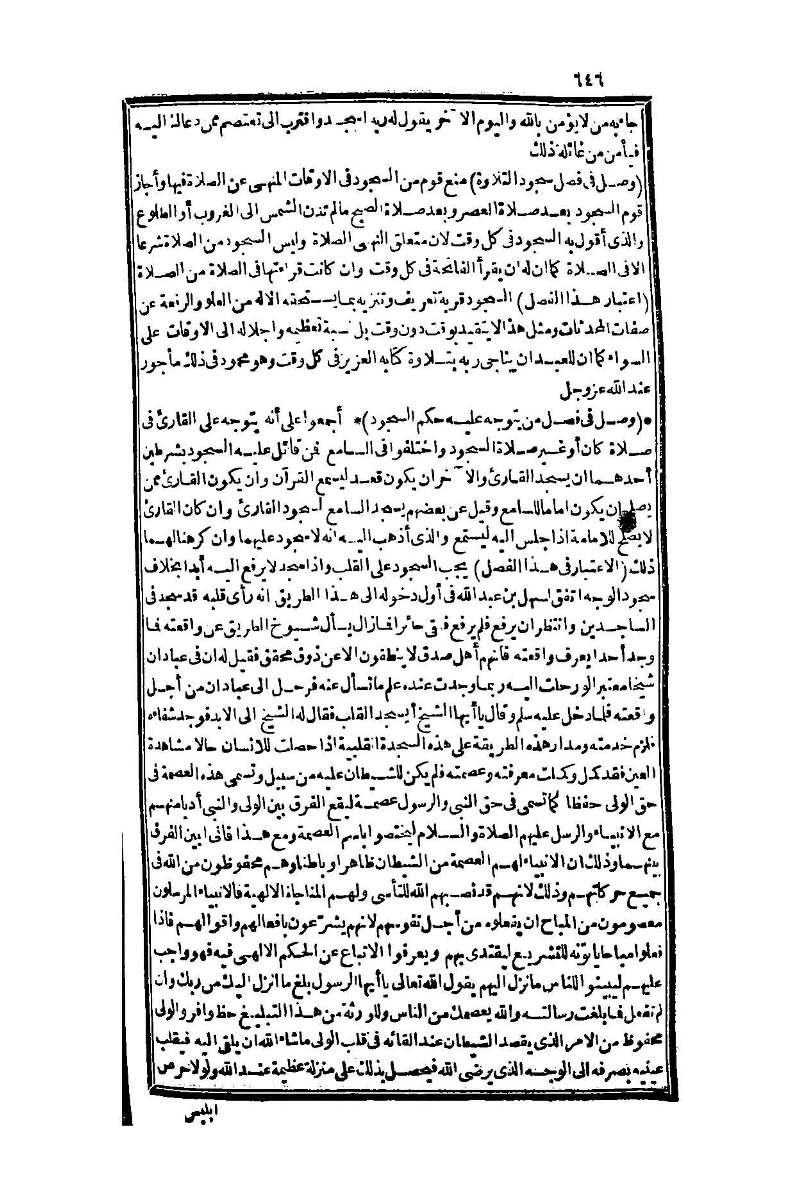 ٦٤٦
جاء به من لا يؤمن بالله واليوم الآخر يقول له ربه اسجد واقترب الى تعتصم ممن دعاك اليه
فيأمن من غائلة ذلك
(وصل فى فصل سجود التلاوة) منع قوم من السجود فى الاوقات المنهى عن الصلاة فيها وأجاز
قوم السجود بعد صلاة العصر وبعد صلاة الصبح مالم تدن الشمس الى الغروب أو الطلوع
والذى أقول به السجود فى كل وقت لان متعلق النهى الصلاة وليس السجود من الصلاة شرعا
الا فى الصلاة كما ان له ان يقرأ الفاتحة فى كل وقت وان كانت قراءتها فى الصلاة من الصلاة
(اعتبار هذا الفصل) السجود قربة تعريف وتنزيه بما يستحقه الاله من العلو والرفعة عن
صفات المحدثات ومثل هذا لا يتقيد بوقت دون وقت بل نسبة تعظيمه واجلاله الى الاوقات على
السواء كما ان للعبد ان يناجى ربه بتلاوة كتابه العزيز فى كل وقت وهو محمود فى ذلك مأجور
عند الله عز وجل
*(وصل فى فصل من يتوجه عليه حكم السجود)* أجمعوا على أنه يتوجه على القارئ فى
صلاة كان أو غير صلاة السجود واختلفوا فى السامع فمن قائل عليه السجود بشرطين
أحدهما ان يسجد القارئ والآخر ان يكون قعد ليسمع القرآن وان يكون القارئ ممن
يصلح ان يكون اماما للسامع وقيل عن بعضهم يسجد السامع لسجود القارئ وان كان القارئ
لا يصلح للامامة اذا جلس اليه ليستمع والذى أذهب اليه انه لا سجود عليهما وان كرهنا لهما
ذلك (الاعتبار فى هذا الفصل) يجب السجود على القلب واذا سجد لا يرفع اليه أبدا بخلاف
سجود الوجه اتفق لسهل بن عبد الله فى أول دخوله الى هذا الطريق انه رأى قلبه قد سجد فى
الساجدين وانتظر ان يرفع فلم يرفع فبقى حائرا فما زال يسأل شيوخ الطريق عن واقعته فما
وجد أحدا يعرف واقعته فانهم أهل صدق لا ينطقون الا عن ذوق محقق فقيل له ان فى عبادان
شيخا معتبرا لو رحلت اليه ربما وجدت عنده علم ما تسأل عنه فرحل الى عبادان من أجل
واقعته فلما دخل عليه سلم وقال يا أيها الشيخ أيسجد القلب فقال له الشيخ الى الابد فوجد شفاءه
فلزم خدمته ومدار هذه الطريقة على هذه السجدة القلبية اذا حصلت للانسان حالا مشاهدة
العين فقد كمل وكملت معرفته وعصمته فلم يكن للشيطان عليه من سبيل وتسمى هذه العصمة فى
حق الولى حفظا كما تسمى فى حق النبى والرسول عصمة ليقع الفرق بين الولى والنبى أدبا منهم
مع الانبياء والرسل عليهم الصلاة والسلام ليختصوا باسم العصمة ومع هذا فانى أبين الفرق
بينهما وذلك ان الانبياء لهم العصمة من الشيطان ظاهرا وباطنا وهم محفوظون من الله فى
جميع حركاتهم وذلك لانهم قد نصبهم الله للتأسى ولهم المناجاة الالهية فالانبياء المرسلون
معصومون من المباح ان يفعلوه من أجل نفوسهم لانهم يشرعون بافعالهم واقوالهم فاذا
فعلوا مباحا يأتونه للتشريع ليقتدى بهم ويعرفوا الاتباع عن الحكم الالهى فيه فهو واجب
عليهم ليبينوا للناس ما نزل اليهم يقول الله تعالى يا أيها الرسول بلغ ما انزل اليك من ربك وان
لم تفعل فما بلغت رسالته والله يعصمك من الناس وللورثة من هذا التبليغ حظ وافر والولى
محفوظ من الامر الذى يقصد الشيطان عند القائه فى قلب الولى ما شاء الله ان يلقى اليه فيقلب
عينه بصرفه الى الوجه الذى يرضى الله فيحصل بذلك على منزلة عظيمة عند الله ولولا حرص
ابليس